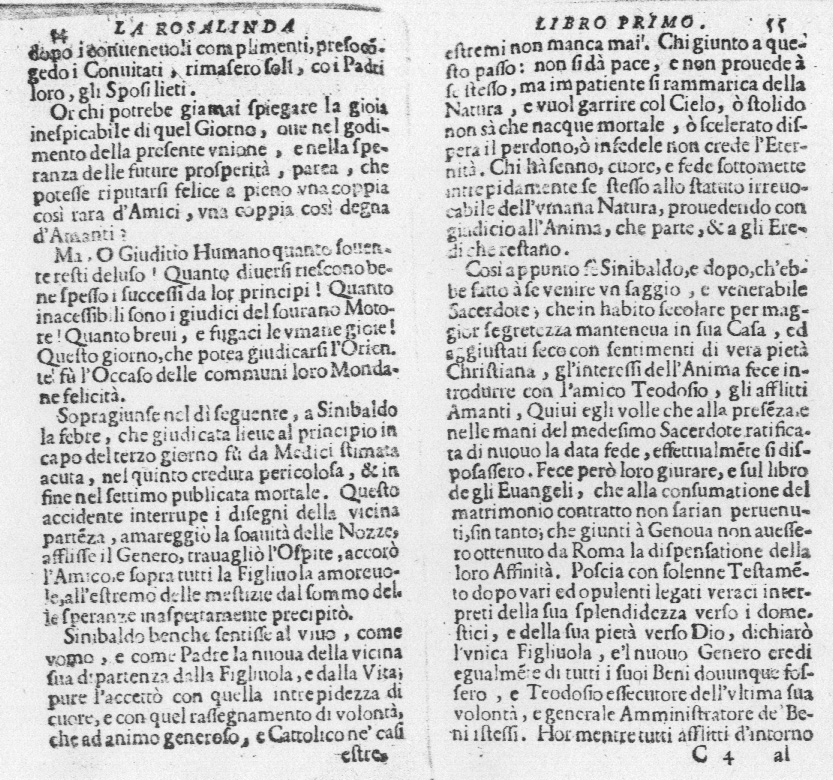 54 LA ROSALINDA
dopo i conueneuoli complimenti, preso cō-
gedo i Conuitati, rimasero soli, co i Padri
loro, gli Sposi lieti.
Or chi potrebe giamai spiegare la gioia
inespicabile di quel Giorno, oue nel godi-
mento della presente vnione, e nella spe-
ranza delle future prosperità, parea, che
potesse riputarsi felice a pieno vna coppia
così rara d'Amici, vna coppia così degna
d'Amanti?
Ma, O Giuditio Humano quanto souen-
te resti deluso! Quanto diuersi riescono be-
ne spesso i successi da lor principi! Quanto
inacessibili sono i giudici del sourano Moto-
re! Quanto breui, e fugaci le vmane gioie!
Questo giorno, che potea giudicarsi l'Orien-
te, fù l'Occaso delle communi loro Monda-
ne felicità.
Sopragiunse nel dì seguente, a Sinibaldo
la febre, che giudicata lieue al principio in
capo del terzo giorno fù da Medici stimata
acuta, nel quinto creduta pericolosa, & in
fine nel settimo publicata mortale. Questo
accidente interrupe i disegni della vicina
partēza, amareggiò la soauità delle Nozze,
afflisse il Genero, trauagliò l'Ospite, accorò
l'Amico, e sopra tutti la Figliuola amoreuo-
le, all'estremo delle mestizie dal sommo del-
le speranze inaspettamente precipitò.
Sinibaldo benche sentisse al viuo, come
vomo, e come Padre la nuoua della vicina
sua dipartenza dalla Figliuola, e dalla Vita;
pure l'accettò con quella intrepidezza di
cuore, e con quel rassegnamento di volontà,
che ad animo generoso, e Cattolico ne' casi
estre-
LIBRO PRIMO. 55
estremi non manca mai. Chi giunto a que-
sto passo: non si dà pace, e non prouede à
se stesso, ma impatiente si rammarica della
Natura, e vuol garrire col Cielo, ò stolido
non sà che nacque mortale, ò scelerato dis-
pera il perdono, ò infedele non crede l'Eter-
nità. Chi hà senno, cuore, e fede sottomette
intrepidamente se stesso allo statuto irreuo-
cabile dell'vmana Natura, prouedendo con
giudicio all'Anima, che parte, & a gli Ere-
di che restano.
Così appunto fè Sinibaldo, e dopo, ch'eb-
be fatto à se venire vn saggio, e venerabile
Sacerdote, che in habito secolare per mag-
gior segretezza manteneua in sua Casa, ed
aggiustati seco con sentimenti di vera pietà
Christiana, gl'interessi dell'Anima fece in-
trodurre con l'amico Teodosio, gli afflitti
Amanti, Quiui egli volle che alla presēza, e
nelle mani del medesimo Sacerdote ratifica-
ta di nuouo la data fede, effettualmēte si dis-
posassero. Fece però loro giurare, e sul libro
de gli Euangeli, che alla consumatione del
matrimonio contratto non sarian peruenu-
ti, sin tanto, che giunti à Genoua non auesse-
ro ottenuto da Roma la dispensatione della
loro Affinità. Poscia con solenne Testamē-
to dopo vari ed opulenti legati veraci inter-
preti della sua splendidezza verso i dome-
stici, e della sua pietà verso Dio, dichiarò
l'vnica Figliuola, e'l nuouo Genero credi
egualmēte di tutti i suoi Beni douunque fos-
sero, e Teodosio essecutore dell'vltima sua
volontà, e generale Amministratore de' Be-
ni istessi. Hor mentre tutti afflitti d'intorno
C 4 al